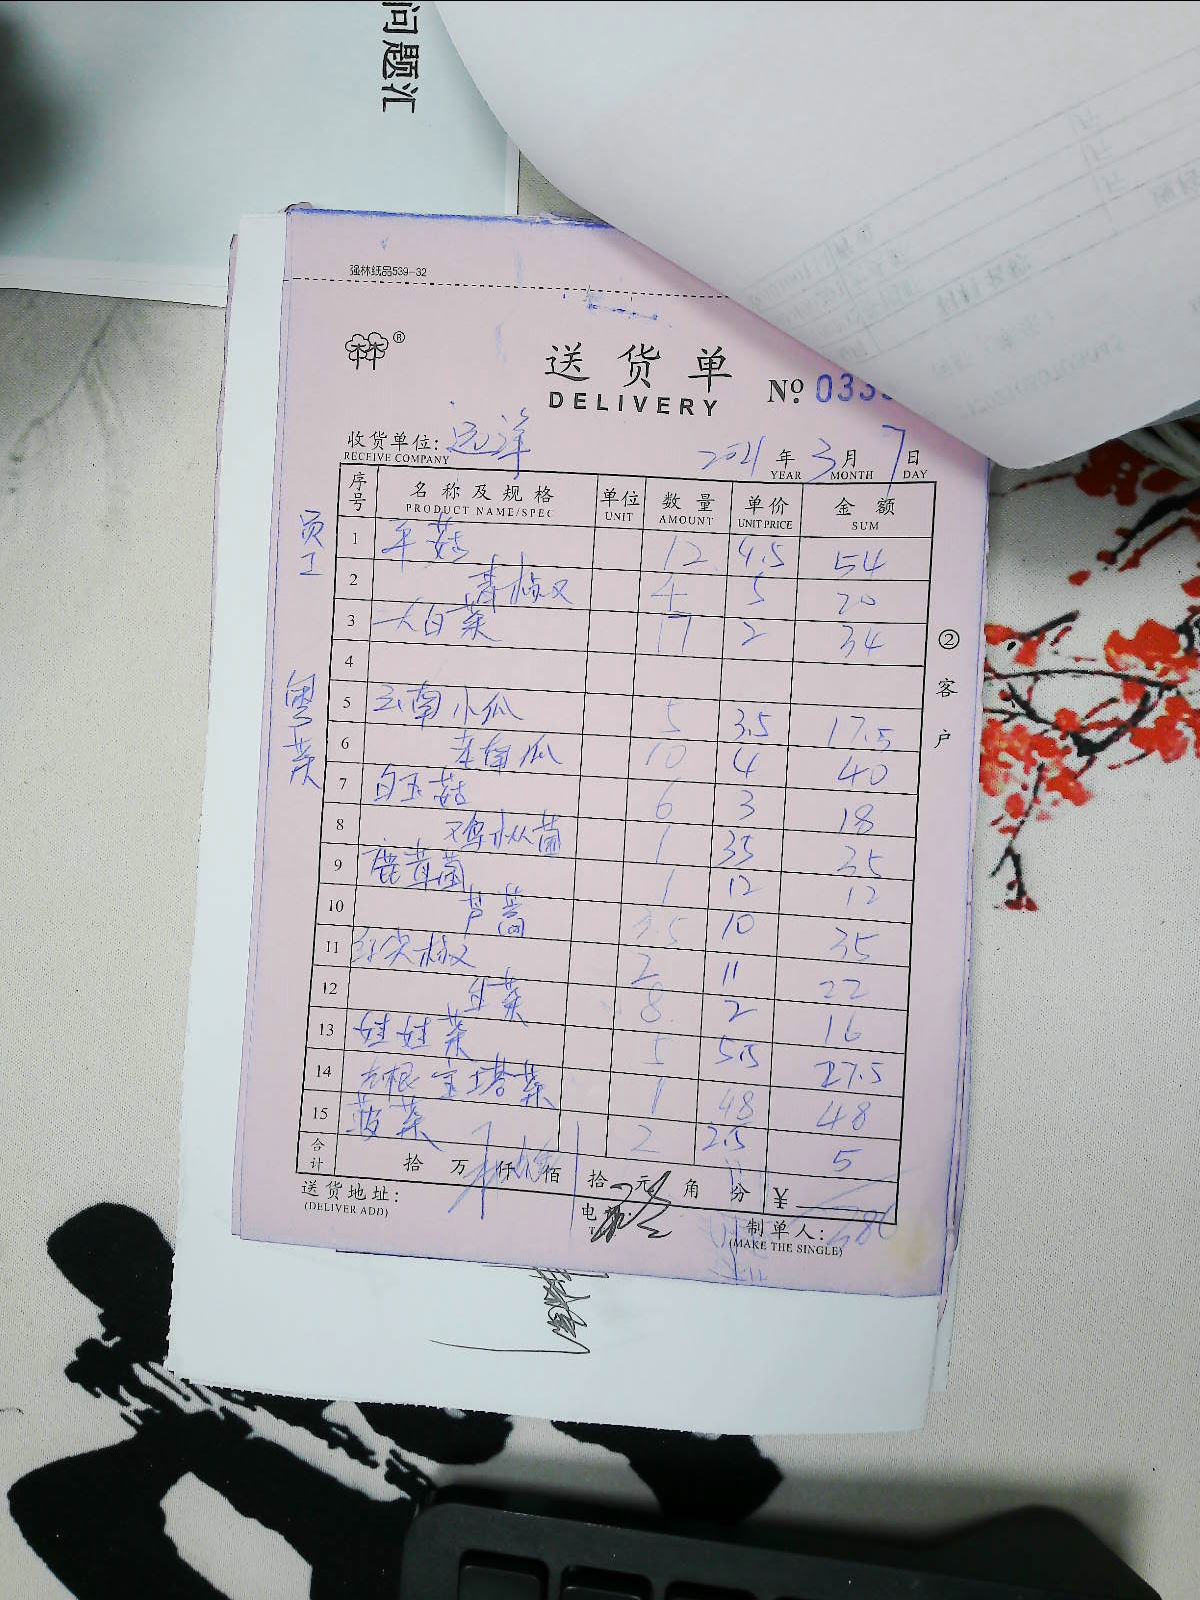 问题汇
强林纸品539-32
林®
送货单
DELIVERY
№ 033
收货单位: 远洋
RECEIVE COMPANY
2021 年 3 月 7 日
YEAR MONTH DAY
序号 名称及规格 单位 数量 单价 金额
PRODUCT NAME/SPEC UNIT AMOUNT UNIT PRICE SUM
员工
1 平菇 12 4.5 54
2 青椒 4 5 20
3 大白菜 17 2 34
4
粤菜
5 云南小瓜 5 3.5 17.5
6 南瓜 10 4 40
7 白玉菇 6 3 18
8 鸡枞菌 1 35 35
9 鹿茸菌 1 12 12
10 芦蒿 3.5 10 35
11 红尖椒 2 11 22
12 韭菜 8 2 16
13 娃娃菜 5 5.5 27.5
14 宝塔菜 1 48 48
15 菠菜 2 2.5 5
合计 拾 万 仟 佰 拾 元 角 分 ¥
送货地址:
(DELIVER ADD)
电
制单人:
(MAKE THE SINGLE)
② 客户